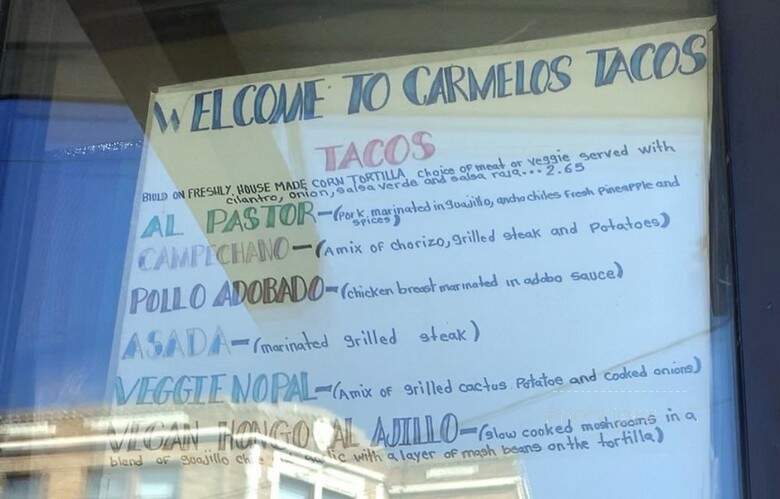 WELCOME TO CARMELOS TACOS
TACOS
BIULD ON FRESHLY, HOUSE MADE CORN TORTILLA choice of meat or veggie served with
cilantro, onion, salsa verde and salsa roja... 2.65
AL PASTOR-(Pork marinated in guajillo, ancho chiles fresh pineapple and
spices)
CAMPECHANO-(A mix of chorizo, grilled steak and Potatoes)
POLLO ADOBADO-(chicken breast marinated in adobo sauce)
ASADA-(marinated grilled steak)
VEGGIE NOPAL-(A mix of grilled cactus Potatoe and cooked onions)
VEGAN HONGO AL AJILLO-(slow cooked moshrooms in a
blend of guajillo with a layer of mash beans on the tortilla)